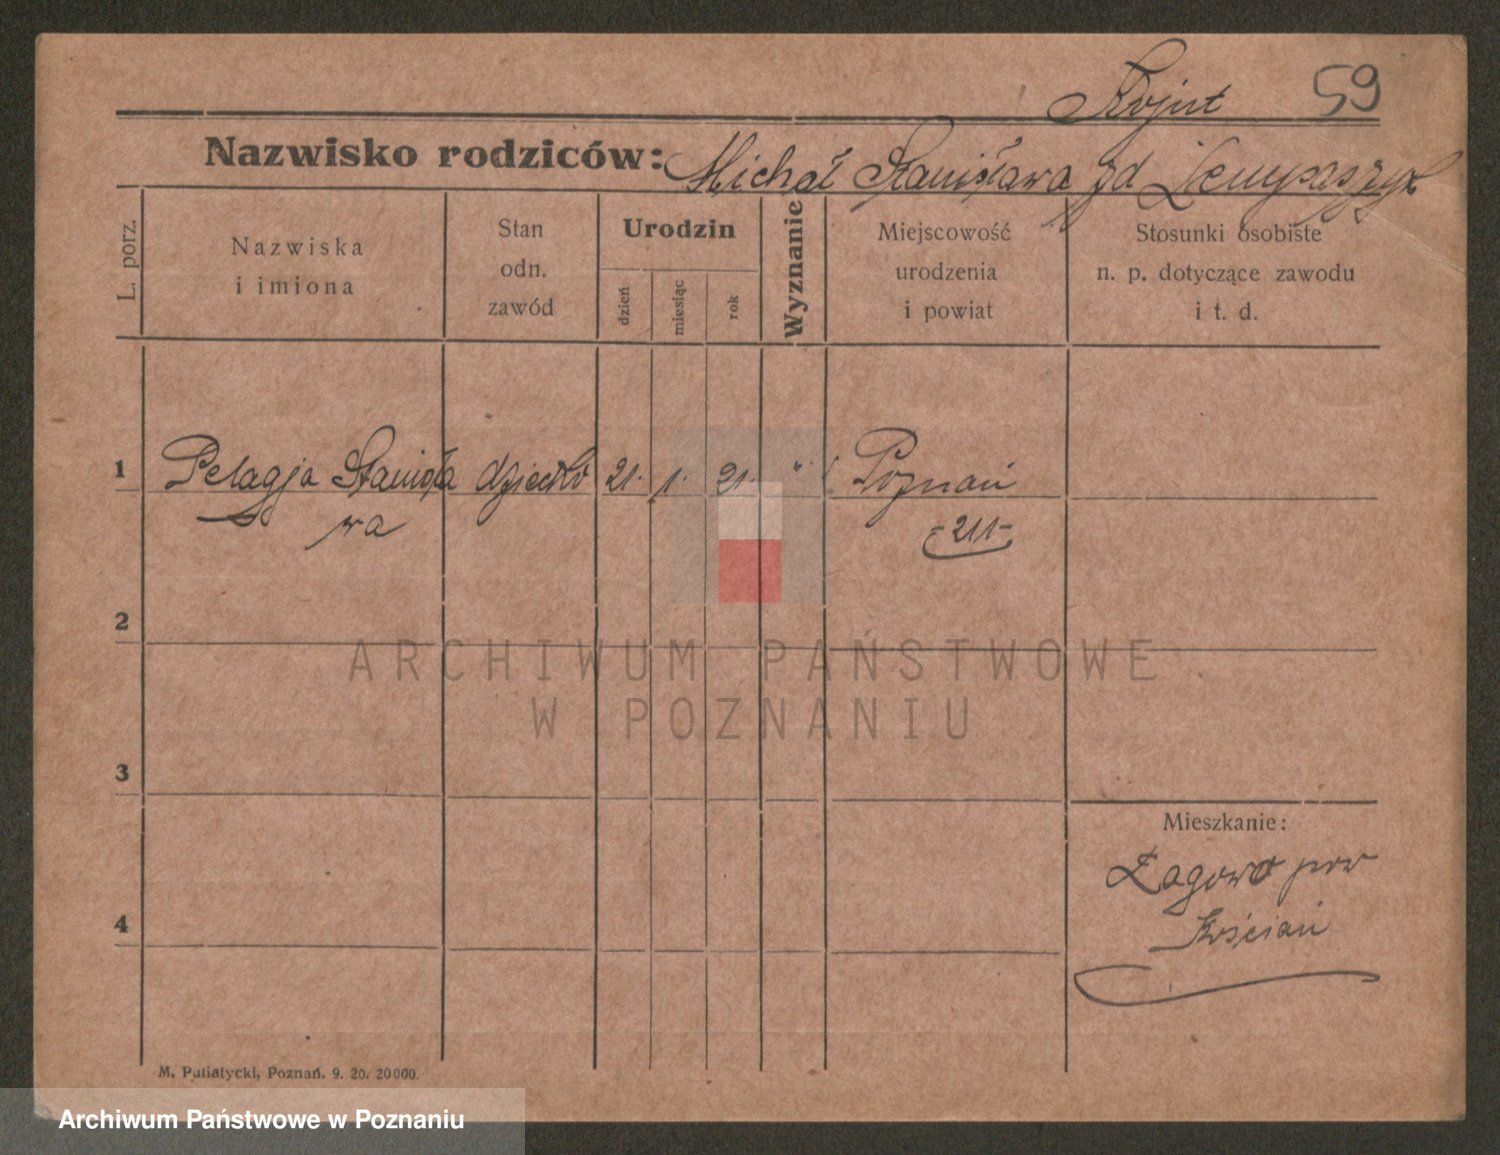 59
Nazwisko rodziców: Michał Stanisława zd
L. porz.
Nazwiska
i imiona
Stan
odn.
zawód
Urodzin
dzień
miesiąc
rok
Wyznanie
Miejscowość
urodzenia
i powiat
Stosunki osobiste
n. p. dotyczące zawodu
i t. d.
1 Pelagja Stanisła dziecko 21. 1. 21. " Poznań
wa
-211-
2
ARCHIWUM PAŃSTWOWE
W POZNANIU
3
Mieszkanie:
Łagowo pow
Kościan
4
M. Putiatycki, Poznań. 9. 20. 20 000.
Archiwum Państwowe w Poznaniu